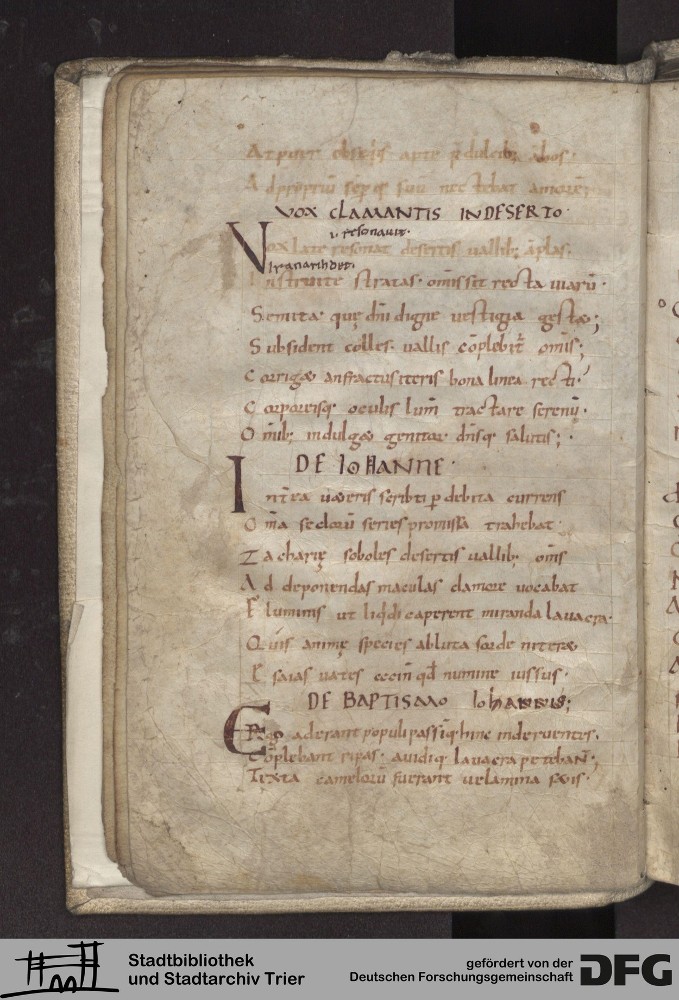 At puer obseqiis apte p dulcib; ābos·
Ad ppriū sēp sūū nectebat amorē
VOX CLAMANTIS INDESERTO·
ł resonauit·
Vox late resonat desertis vallib; āpla·
Instruite stratas· omis sit recta uiarū·
Semita· quę dn̄i digne uestigia gestæ;
Subsident colles· uallis cōplebit̄ omis;
Corrigæ anfractus iteris bona linea recti·
Corporeisq; oculis lum̄ tractare serenū·
Om̄ib; indulgæ genitor dn̄sq; salutis;·
DE IOHANNE·
Interea ueteris scribti p debita currens
Om̄a seclorū series promissa trahebat·
Zacharię soboles desertis uallib; om̄s
Ad deponendas maculas clamore uocabat
Fluminis ut liqidi caperent miranda lauacra·
Quis animę species abluta sorde niteræ
Esaias uates cecin̄ qd̄ numine iussus·
DE BAPTISMO Iohannis;
Ergo aderant populi passīq; hinc inde ruentes·
Cōplebant ripas· auidiq; lauacra petebant·
Texta camelorū fuerant uelamina sætis·
Stadtbibliothek
und Stadtarchiv Trier
gefördert von der
Deutschen Forschungsgemeinschaft
DFG